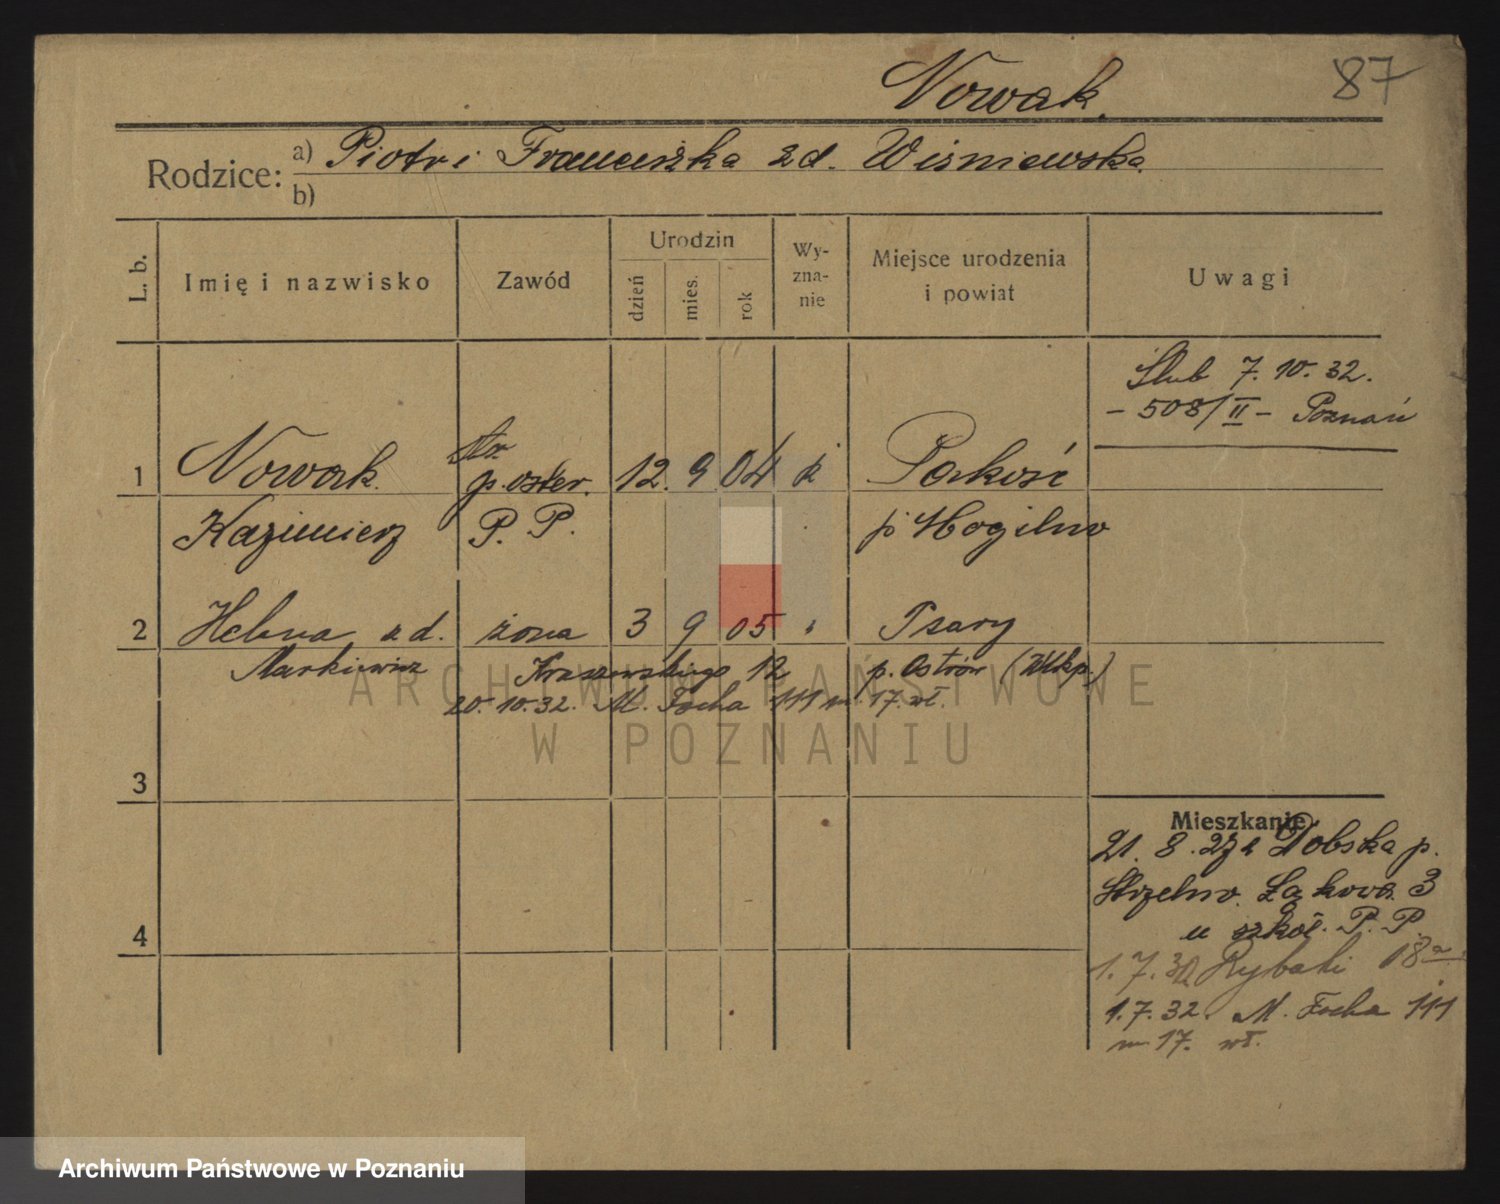 Nowak.
87
Rodzice:
a) Piotr i Franciszka zd. Wiśniewska.
b)
L. b.
Imię i nazwisko
Zawód
Urodzin
dzień
mies.
rok
Wy-
zna-
nie
Miejsce urodzenia
i powiat
Uwagi
Ślub 7.10.32.
- 508/II - Poznań
1 Nowak. p. oster. 12. 9 04 k Pakość
Kazimierz P. P. p. Mogilno
2 Helena zd. żona 3 9 05 " Psary
Markiewicz Kraszewskiego 12 p. Ostrów (Wlkp.)
20.10.32. M. Focha 111 m 17. wł.
3
4
Mieszkanie
21. 8. z Dobska p.
Strzelno. Łąkowa 3
u szkoł. P. P.
1.7. Rybaki 18a
1.7.32. M. Focha 111
m 17. wł.
ARCHIWUM PAŃSTWOWE
W POZNANIU
Archiwum Państwowe w Poznaniu